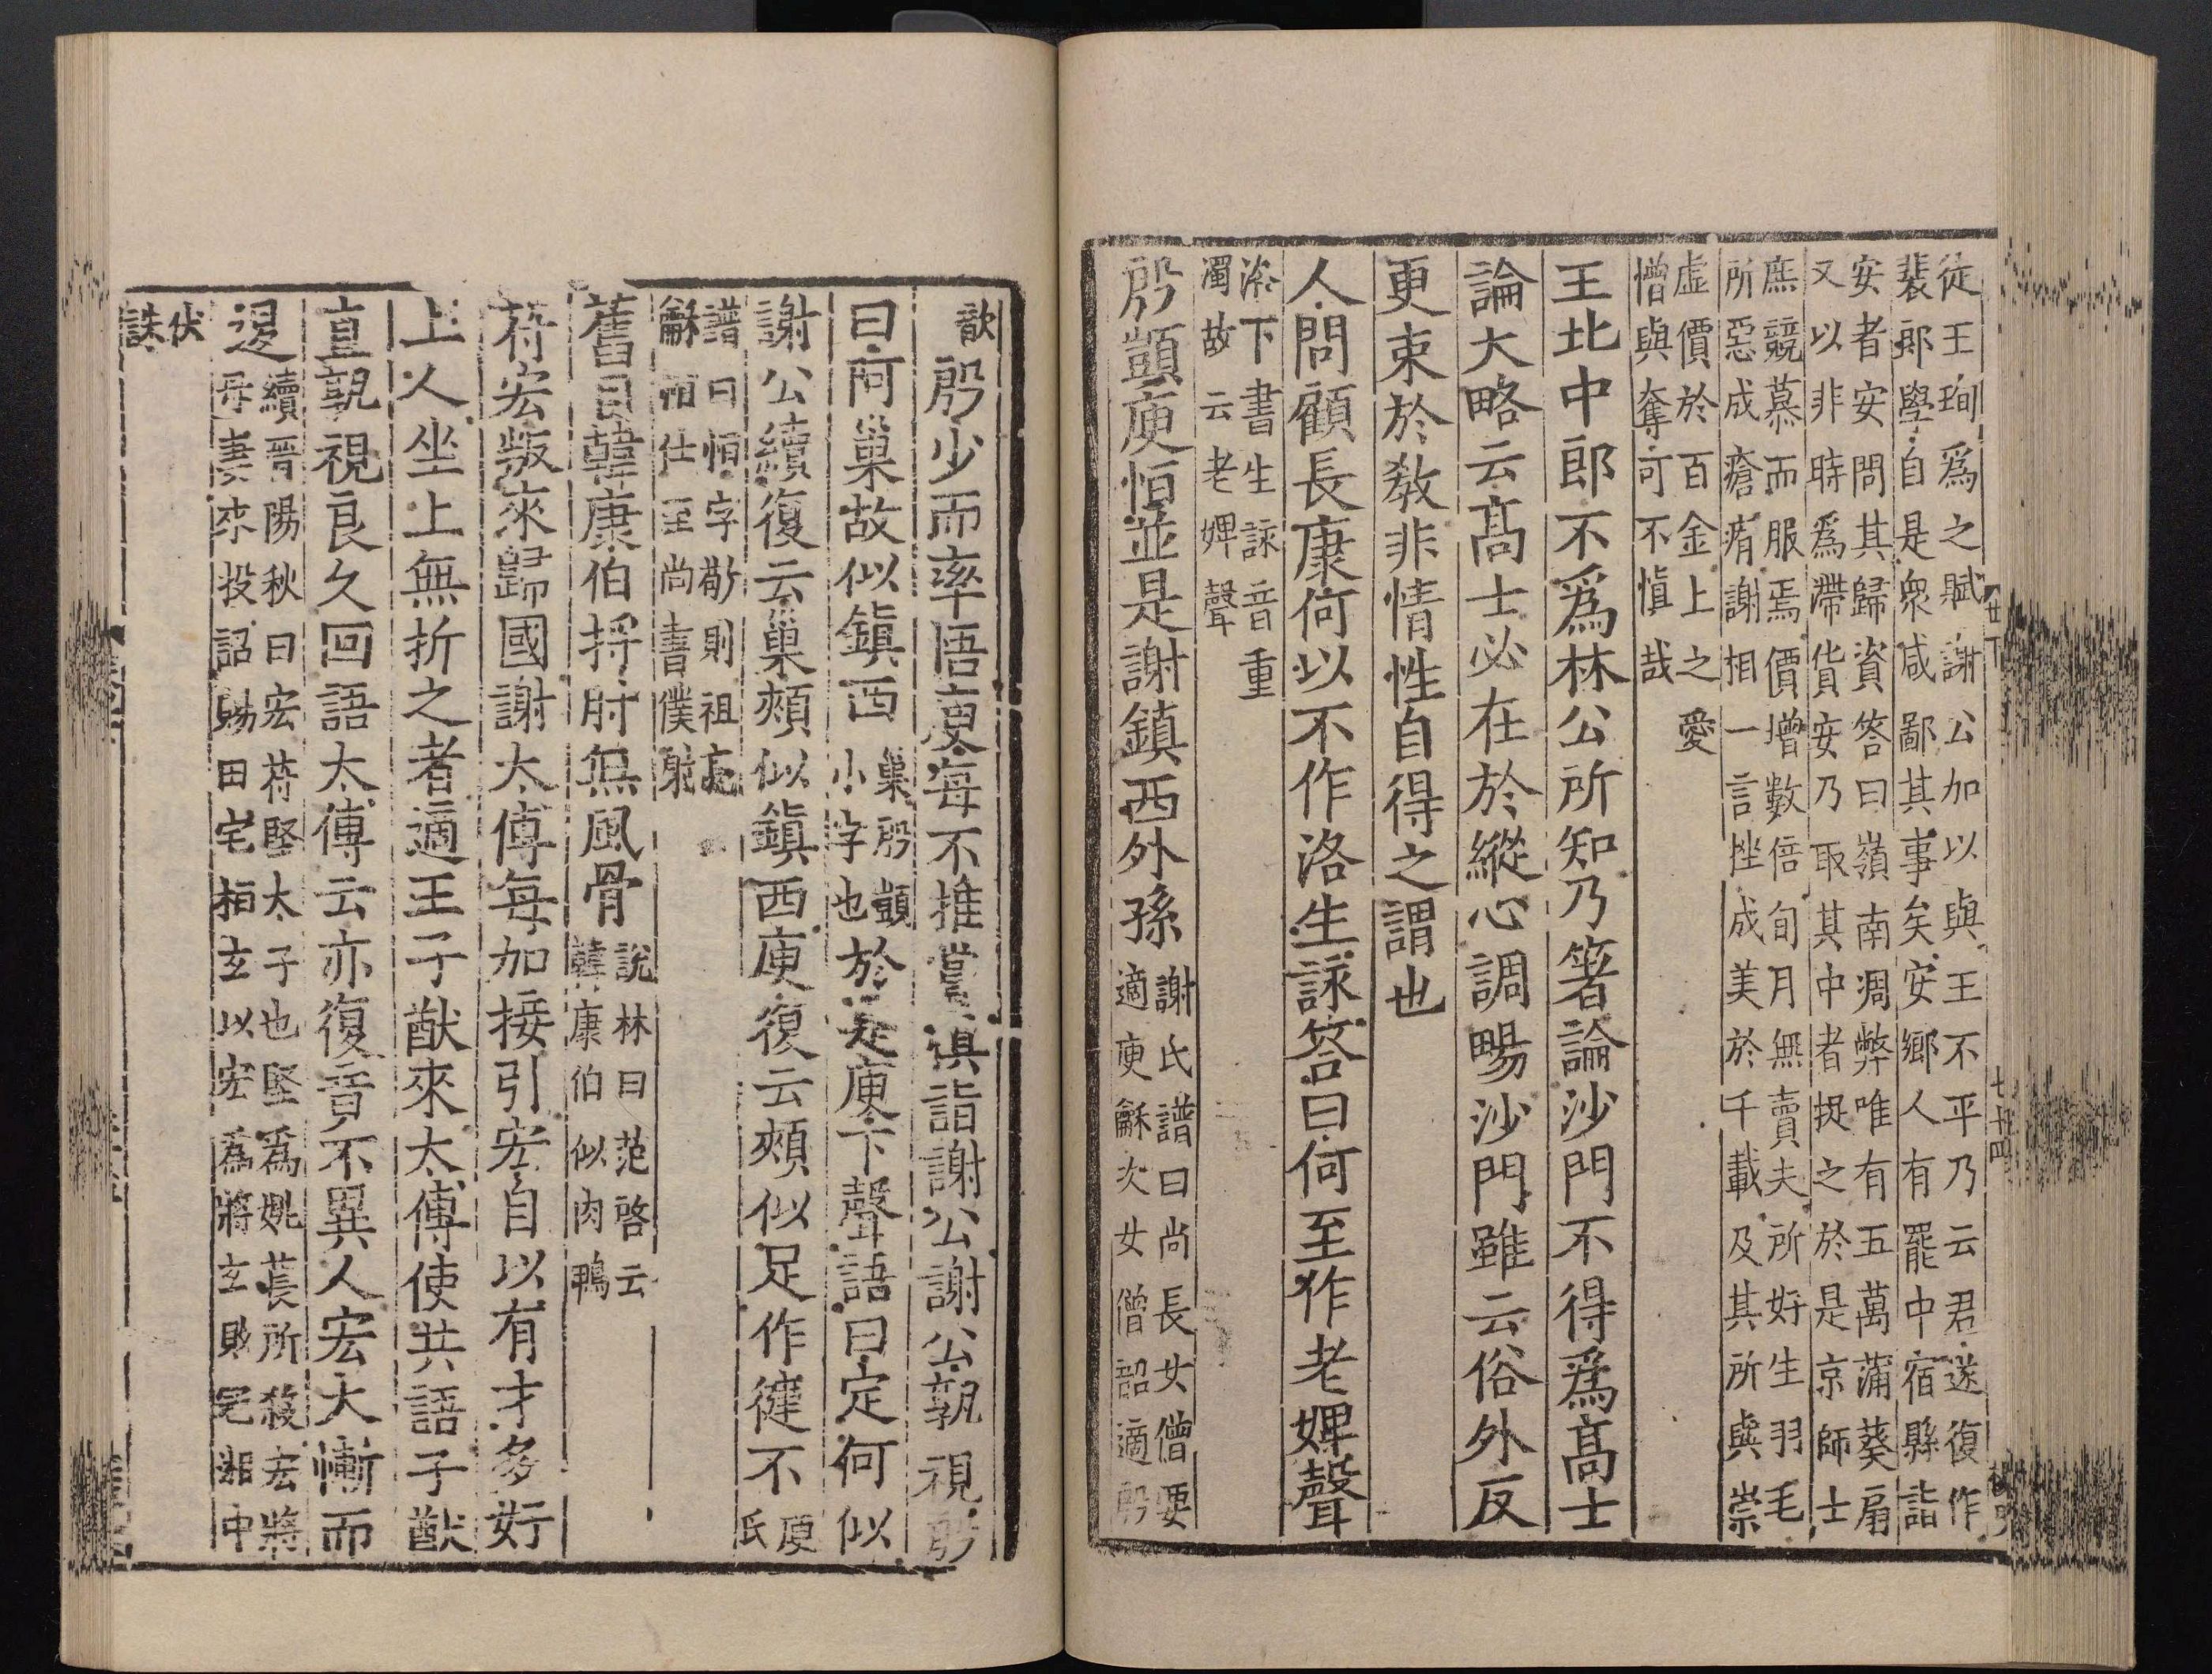 從王珣爲之賦謝公加以與王不平乃云君遂復作
裴郎學自是衆咸鄙其事矣安鄉人有罷中宿縣詣
安者安問其歸資答曰嶺南凋弊唯有五萬蒲葵扇
又以非時爲滯貨安乃取其中者捉之於是京師士
庶競慕而服焉價增數倍旬月無賣夫所好生羽毛
所惡成瘡痏謝相一言挫成美於千載及其所與崇
虛價於百金上之愛
憎與奪可不慎哉
王北中郎不爲林公所知乃著論沙門不得爲高士
論大略云高士必在於縱心調暢沙門雖云俗外反
更束於教非情性自得之謂也
人問顧長康何以不作洛生詠答曰何至作老婢聲
洛下書生詠音重
濁故云老婢聲
殷顗庾恒並是謝鎮西外孫
謝氏譜曰尚長女僧要
適庾龢次女僧韶適殷
歆
殷少而率悟庾每不推嘗俱詣謝公謝公孰視殷
曰阿巢故似鎮西
巢殷顗
小字也
於是庾下聲語曰定何似
謝公續復云巢頰似鎮西庾復云頰似足作健不
庾氏
譜曰恒字敬則祖亮
龢仕至尚書僕射
舊目韓康伯捋肘無風骨
說林曰范啓云
韓康伯似肉鴨
苻宏叛來歸國謝太傅每加接引宏自以有才多好
上人坐上無折之者適王子猷來太傅使共語子猷
直孰視良久回語太傅云亦復竟不異人宏大慚而
退
續晉陽秋曰宏苻堅太子也堅爲姚萇所殺宏將
母妻來投詔賜田宅桓玄以宏爲將玄敗宏湘中
伏
誅
七十四